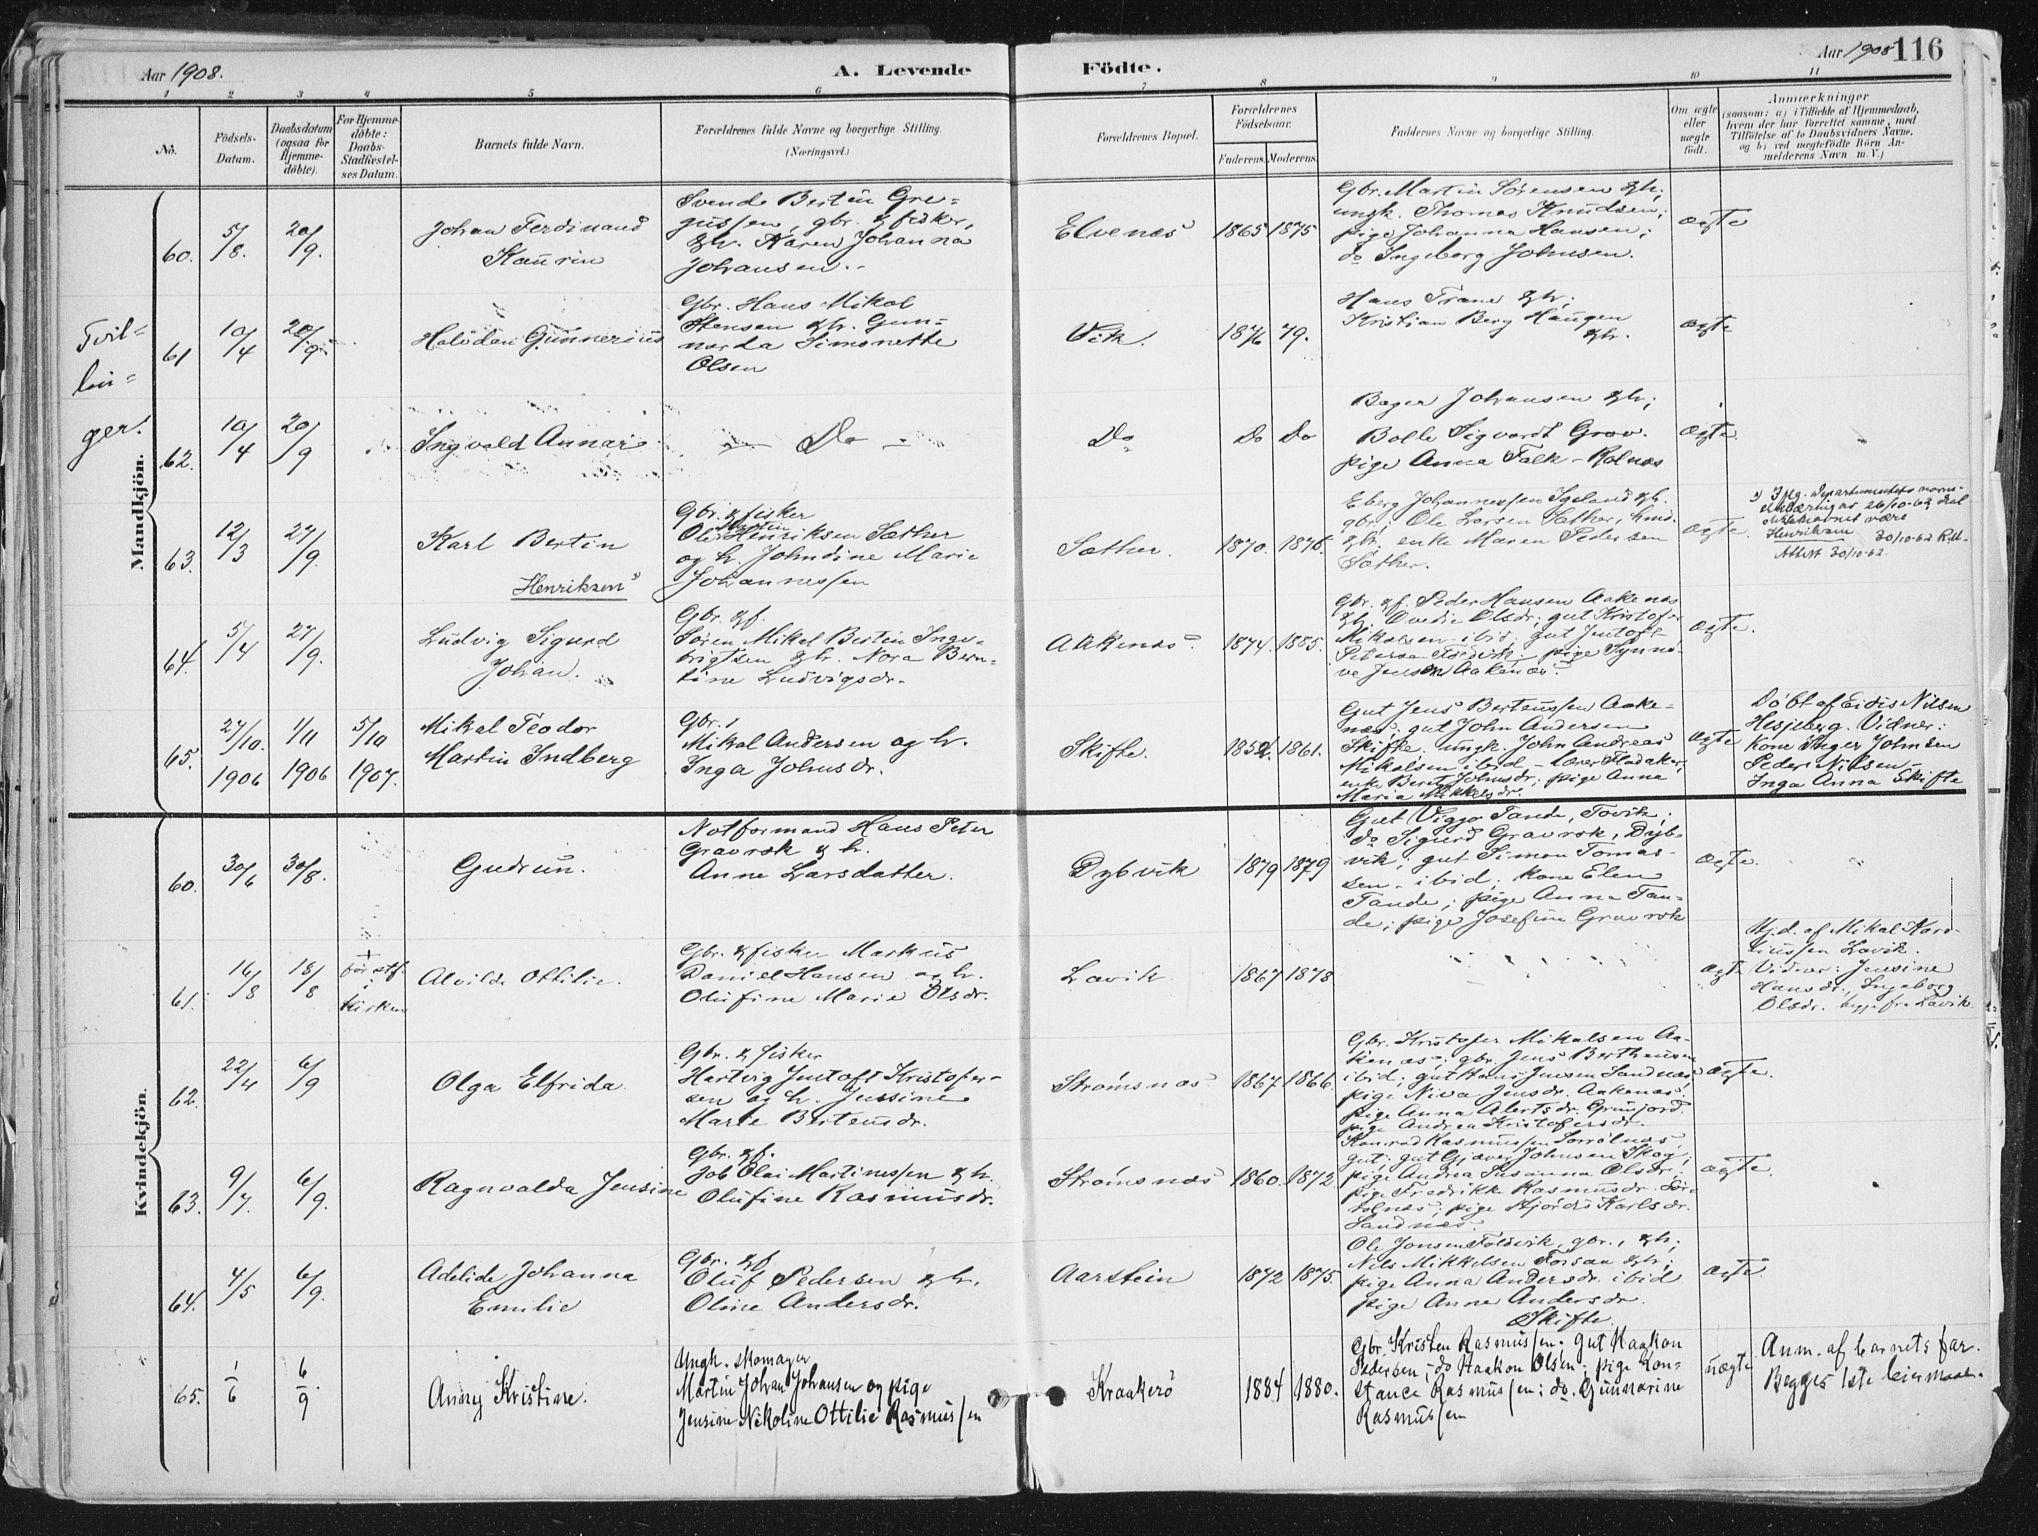 Aar 1908.
A. Levende Födte.
Aar 1908 116
1 2 3 4 5 6 7 8 9 10 11
No.
Födsels-
Datum.
Daabsdatum
(ogsaa for
Hjemme-
döbte).
For Hjemme-
döbte:
Daabs-
Stadfæstel-
ses Datum.
Barnets fulde Navn.
Forældrenes fulde Navne og borgerlige Stilling.
(Næringsvei.)
Forældrenes Bopæl.
Forældrenes
Födselsaar.
Faderens. Moderens.
Faddernes Navne og borgerlige Stilling.
Om ægte
eller
uægte
födt.
Anmærkninger
(saasom: a) i Tilfælde af Hjemmedaab,
hvem der har forrettet samme, med
Tilföielse af to Daabsvidners Navne.
og b) ved uægtefödte Börn An-
melderens Navn m. V.)
Mandkjön.
60. 5/8. 20/9.
Johan Ferdinand
Kaurin
Svends Bertin Gre-
gussen, gbr. & fisker,
& h. Karen Johanna
Johansen.
Elvenes 1865 1875
Gbr. Martin Sørensen & h.;
ungk. Thomas Knudsen;
pige Johanna Hansen;
do Ingeborg Johnsen.
ægte
Tvil-
lin-
ger.
61 10/4 20/9
Halvdan Gunnerius
Gbr. Hans Mikal
Stensen & h. Gun-
narda Simonette
Olsen
Vik. 1876 79.
Hans Trane & h;
Kristian Berg Haugen
& h.
ægte
62. 10/4 20/9
Ingvald Annar
Do
Do Do Do
Bager Johansen & h;
Bolle Sigvardt Grav.
pige Anna Falk - Rolnæs
ægte.
63. 12/3 27/9.
Karl Bertin
Henriksen
Gbr. & fisker
Ole Bertin Henriksen Sæther
og h. Johndine Marie
Johannessen
Sæther. 1870. 1876.
Eberg Johannessen Igeland & h.
gbr. Ole Larsen Sæther, hmd.
& h; enke Maren Pedersen
Sæther.
ægte.
Henriksen 30/10-62
Attest 30/10-62.
64. 5/4 27/9.
Ludvig Sigurd
Johan.
Gbr. & f.
Søren Mikal Bertin Inge-
brigtsen & h. Nora Bern-
tine Ludvigsdr.
Aakenæs. 1874. 1885.
Gbr. & f. Peder Hansen Aakenæs
& h. Ovedie Olsdr; gut Kristofer
Mikalsen - ibid; gut Jentoft
Petersen; pige Synnø-
ve Jensen Aakenæs.
ægte.
65. 27/10. 1906 1/11 1906 5/10 1907.
Mikal Teodor
Martin Indberg
Gbr.
Mikal Andersen og h.
Inga Johnsdr.
Skifte. 1852. 1861.
Gut Jens Berteussen Aake-
næs, gut John Andersen
Skifte. ungk. John Andreas
Mikalsen ibid - Lærer Fladaker,
enke Berte Johnsdr; pige Anna
Maria Mikkelsdr.
ægte
Döbt af Eidis Nilsen
Hesjeberg. Vidner:
kone Inger Johnsen
Peder Nilsen -
Inga Anna Skifte
Kvindekjön.
60. 30/6 30/8.
Gudrun.
Notformand Hans Peter
Gravrok & h.
Anne Larsdatter.
Dybvik 1879 1879
Gut Viggo Tande, Tovik;
do Sigurd Gravrok, Dyb-
vik; gut Simon Tomas-
sen - ibid; kone Elen
Tande; pige Anna Tan-
de; pige Josefine Gravrok
ægte.
61. 16/8 18/8
i
kirken
Alvilde Ottilie.
Gbr. & fisker Markus
Daniel Hansen og h.
Olufine Marie Olsdr.
Lavik 1867 1878
ægte
Hj.d. af Mikal Kor-
niussen Lavik.
Vidner: Jensine
Hansdr., Ingeborg
Olsdr. begge fra Lavik.
62. 22/4 6/9
Olga Elfrida.
Gbr. & fisker
Hartvig Jentoft Kristofer-
sen og h. Jessine
Marie Berteusdr.
Strømsnæs 1867 1866.
Gbr. Kristofer Mikalsen Aa-
kenæs; gbr. Jens Bertheusen
ibid; gut Hans Jensen Sandnæs,
pige Niva Jensdr. Aakenæs.
pige Anna Alertsdr. Grunjord.
pige Andrea Kristofersdr.
ægte.
63. 9/7. 6/9.
Ragnvalda Jensine
Gbr. & f.
Job Olai Martinessen & h.
Olufine Rasmusdr.
Strømsnæs 1860. 1872.
Konrad Rasmussen Sørrolnæs
gut; gut Gjæver Johnsen Skog;
pige Andrea Susanna Olsdr;
pige Fredrikke Rasmusdr. Sør-
rolnæs; pige Hjørdis Karlsdr.
Sandnæs.
ægte.
64. 4/5 6/9.
Adelide Johanna
Emilie
Gbr. & f.
Oluf Pedersen & h.
Oline Andersdr.
Aarstein 1872 1875.
Ole Jonsen Foldvik, gbr., & h;
Nils Mikkelsen Forsaa & h;
pige Anna Andersdr. ibid
pige Anne Andersdr.
Skifte.
ægte.
65. 1/6 6/9.
Anny Kristine.
Ungk. skomager
Martin Johan Johansen og pige
Jensine Nikoline Ottilie Rasmussen
Kraakerø 1884 1880.
Gbr. Kristen Rasmussen. Gut Haakon
Pedersen, do Haakon Olsen; pige Kon-
stance Rasmussen; do. Gunnarine
Rasmussen
uægte
Anm. af barnets far.
Begges 1ste leiermaal.